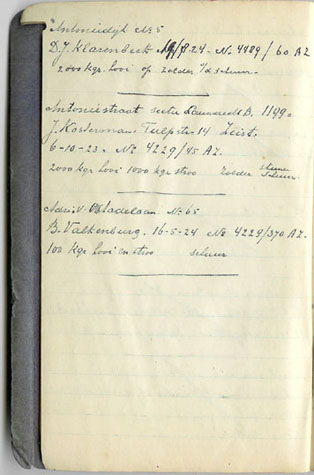 Antoniedijk No 5
D.J. Klarenbeek 19/8 24 - No 4489/60 AZ
2000 kgr. hooi op zolder v/d schuur.
Antoniestraat sectie B. 1199 =
J. Kosterman Tulpstr. 14 Zeist.
6-10-23. No 4229/45 AZ.
2000 kgr hooi 1000 kgr stroo zolder schuur.
Adri. v. Ostadelaan No 65
B. Valkenburg. 16-5-24 No 4229/370 AZ.
100 kgr hooi en stroo schuur